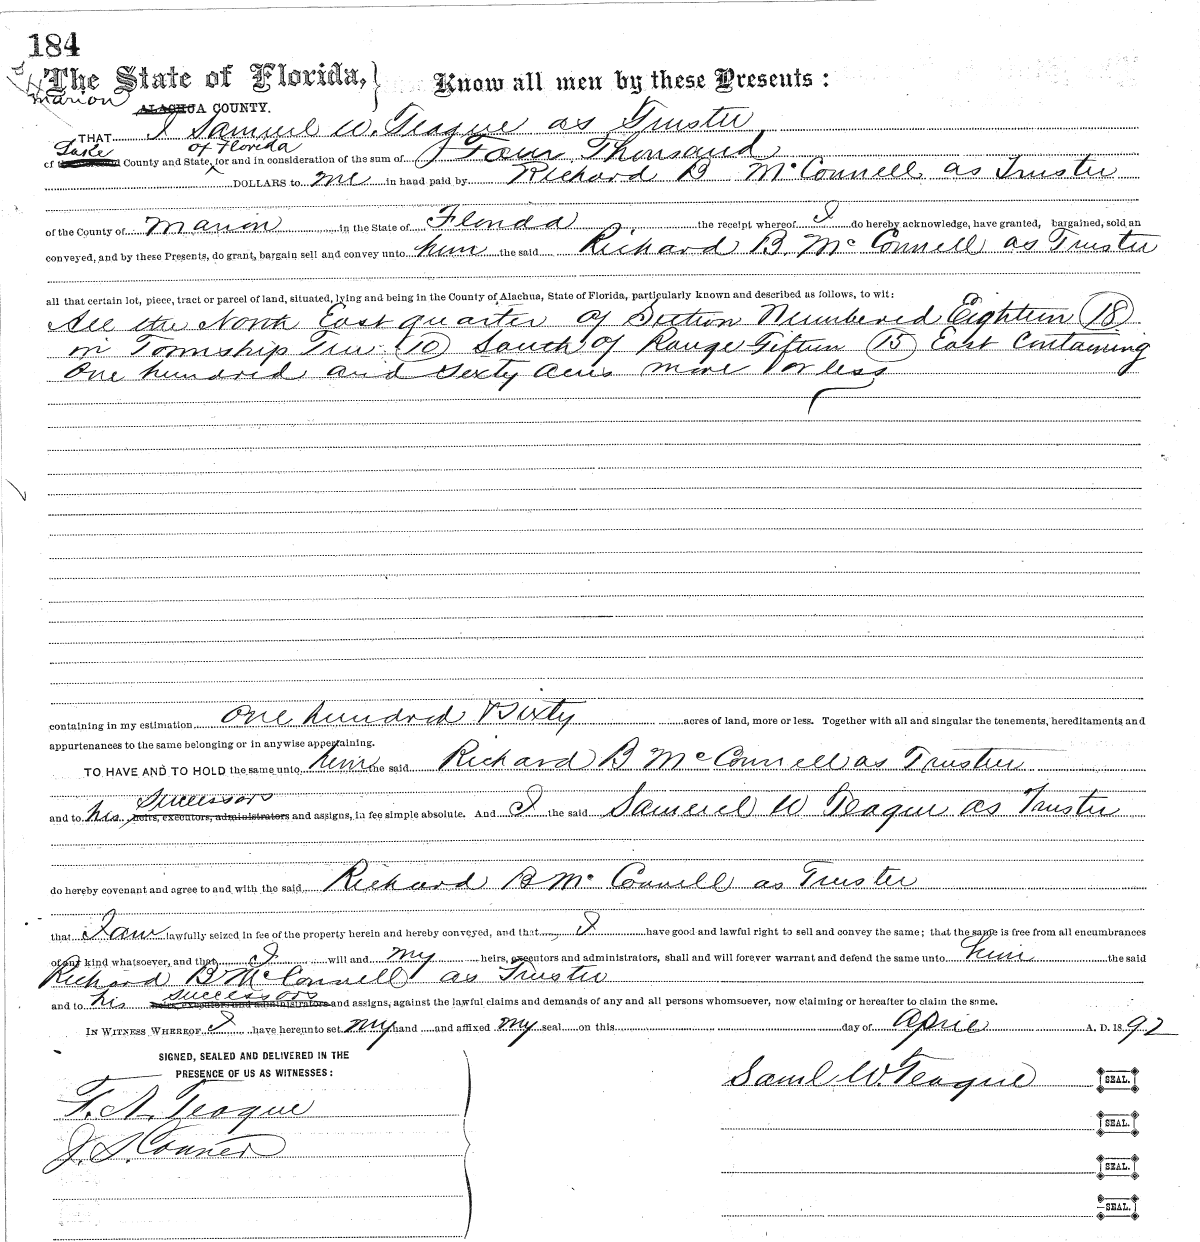 184
The State of Florida, } Know all men by these Presents :
Marion
ALACHUA COUNTY.
THAT I Samuel W. Teague as Trustee
Lake of Florida
of the County and State, for and in consideration of the sum of Four Thousand
DOLLARS to me in hand paid by Richard B McConnell as Trustee
of the County of Marion in the State of Florida the receipt whereof I do hereby acknowledge, have granted, bargained, sold an
conveyed, and by these Presents, do grant, bargain sell and convey unto him the said Richard B. McConnell as Trustee
all that certain lot, piece, tract or parcel of land, situated, lying and being in the County of Alachua, State of Florida, particularly known and described as follows, to wit:
All the North East quarter of Section Numbered Eighteen (18)
in Township Ten (10) South of Range Fifteen (15) East Containing
One hundred and Sixty acres more or less
containing in my estimation One hundred Sixty acres of land, more or less. Together with all and singular the tenements, hereditaments and
appurtenances to the same belonging or in anywise appertaining.
TO HAVE AND TO HOLD the same unto him the said Richard B McConnell as Trustee
successors
and to his heirs, executors, administrators and assigns, in fee simple absolute. And I the said Samuel W Teague as Trustee
do hereby covenant and agree to and with the said Richard B McConnell as Trustee
that I am lawfully seized in fee of the property herein and hereby conveyed, and that I have good and lawful right to sell and convey the same; that the same is free from all encumbrances
of any kind whatsoever, and that I will and my heirs, executors and administrators, shall and will forever warrant and defend the same unto him the said
Richard B McConnell as Trustee
successors
and to his heirs, executors and administrators and assigns, against the lawful claims and demands of any and all persons whomsoever, now claiming or hereafter to claim the same.
IN WITNESS WHEREOF I have hereunto set my hand and affixed my seal on this day of April A. D. 1892
SIGNED, SEALED AND DELIVERED IN THE
PRESENCE OF US AS WITNESSES:
Saml W. Teague SEAL.
F. A. Teague
SEAL.
J. S. Conner
SEAL.
SEAL.